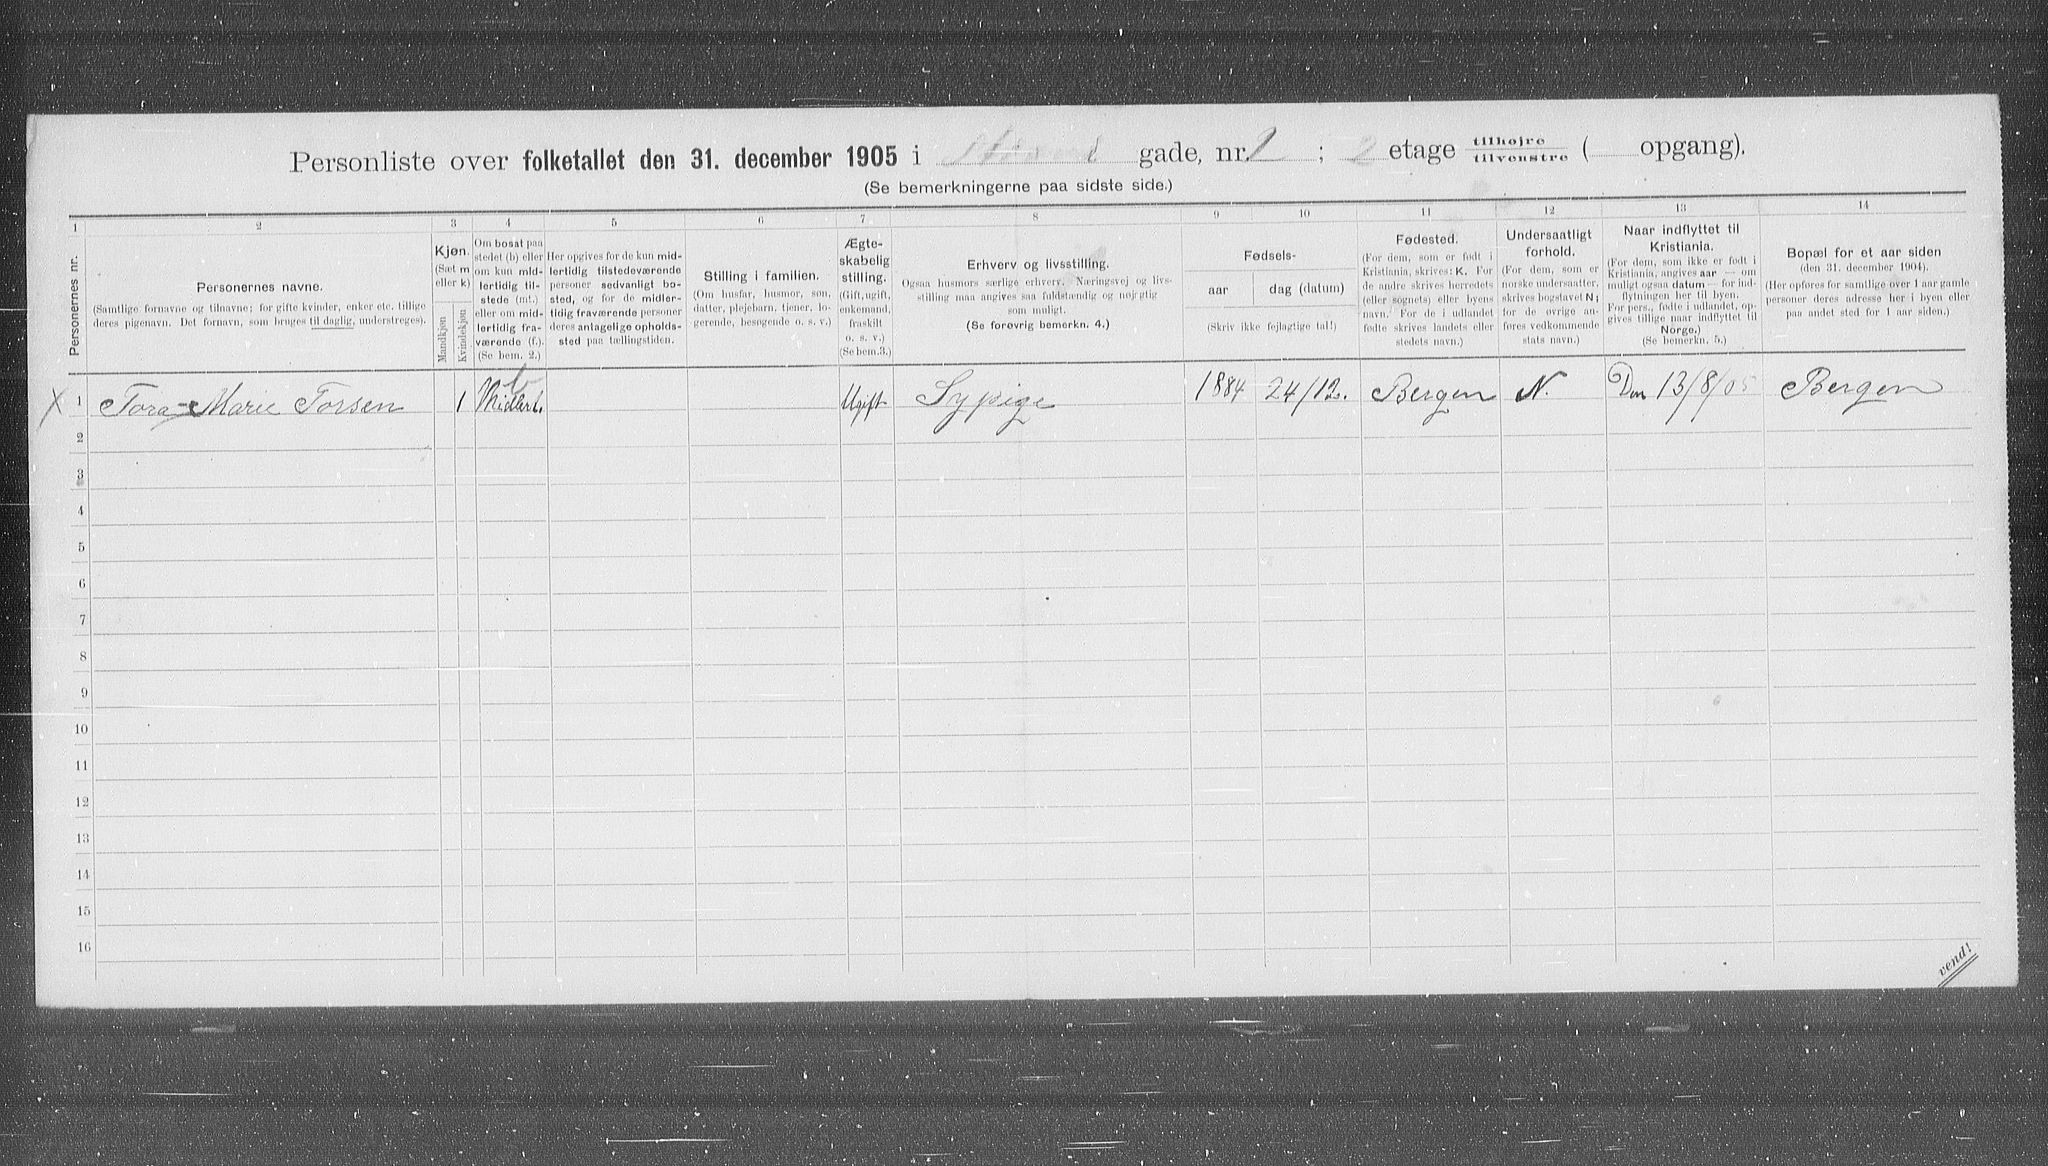 Personliste over folketallet den 31. december 1905 i gade, nr. 1 ; 2 etage tilhøjre tilvenstre ( opgang).
(Se bemerkningerne paa sidste side.)
1 2 3 4 5 6 7 8 9 10 11 12 13 14
Personernes nr.
Personernes navne.
(Samtlige fornavne og tilnavne; for gifte kvinder, enker etc. tillige
deres pigenavn. Det fornavn, som bruges til daglig, understreges).
Kjøn.
(Sæt m
eller k)
Mandkjøn
Kvindekjøn
Om bosat paa
stedet (b) eller
om kun mid-
lertidig til-
stede (mt.)
eller om mid-
lertidig fra-
værende (f.).
(Se bem. 2.)
Her opgives for de kun mid-
lertidig tilstedeværende
personer sedvanligt bo-
sted, og for de midler-
tidig fraværende personer
deres antagelige opholds-
sted paa tællingstiden.
Stilling i familien.
(Om husfar, husmor, søn,
datter, plejebarn, tjener, lo-
gerende, besøgende o. s. v.)
Ægte-
skabelig
stilling.
(Gift, ugift,
enkemand,
fraskilt
o. s. v.)
(Se bem.3.)
Erhverv og livsstilling.
Ogsaa husmors særlige erhverv. Næringsvej og livs-
stilling maa angives saa fuldstændig og nøjagtig
som muligt.
(Se forøvrig bemerkn. 4.)
Fødsels-
aar dag (datum)
(Skriv ikke fejlagtige tal!)
Fødested.
(For dem, som er født i
Kristiania, skrives: K. For
de andre skrives herredets
(eller sognets) eller byens
navn. For de i udlandet
fødte skrives landets eller
stedets navn.)
Undersaatligt
forhold.
(For dem, som er
norske undersaatter,
skrives bogstavet N;
for de øvrige an-
føres vedkommende
stats navn.)
Naar indflyttet til
Kristiania.
(For dem, som ikke er født i
Kristiania, angives aar — om
muligt ogsaa datum — for ind-
flytningen her til byen.
For pers., fødte i udlandet, op-
gives tillige naar indflyttet til
Norge.)
(Se bemerkn. 5.)
Bopæl for et aar siden
(den 31. december 1904).
(Her opføres for samtlige over 1 aar gamle
personer deres adresse her i byen eller
paa andet sted for 1 aar siden.)
X 1 Tora Marie Torsen 1 b Midlert. Ugift Sypige 1884 24/12. Bergen N. Den 13/8/05 Bergen
2
3
4
5
6
7
8
9
10
11
12
13
14
15
16
vend!